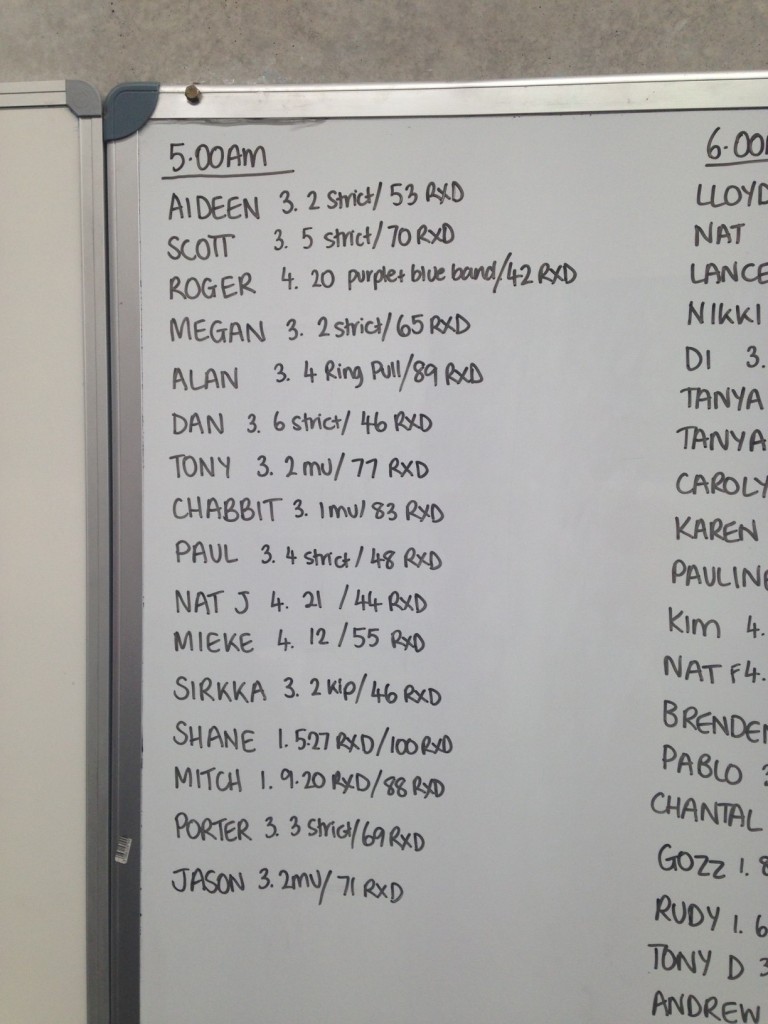 5.00AM
AIDEEN 3. 2 strict/ 53 RXD
SCOTT 3. 5 strict/70 RXD
ROGER 4. 20 purple+ blue band/42 RXD
MEGAN 3. 2 strict/65 RXD
ALAN 3. 4 Ring Pull/89 RXD
DAN 3. 6 strict/ 46 RXD
TONY 3. 2 mu/ 77 RXD
CHABBIT 3. 1mu/ 83 RXD
PAUL 3. 4 strict/ 48 RXD
NAT J 4. 21 /44 RXD
MIEKE 4. 12 /55 RXD
SIRKKA 3. 2 Kip/ 46 RXD
SHANE 1. 5:27 RXD/100 RXD
MITCH 1. 9.20 RXD/88 RXD
PORTER 3. 3 strict/69 RXD
JASON 3. 2mu/ 71 RXD
6.00
LLOYD
NAT
LANCE
NIKKI
DI 3.
TANYA
TANYA
CAROLY
KAREN
PAULINE
KIM 4.
NAT F 4.
BRENDEN
PABLO
CHANTAL
GOZZ 1. 8
RUDY 1. 6
TONY D 3
ANDREW